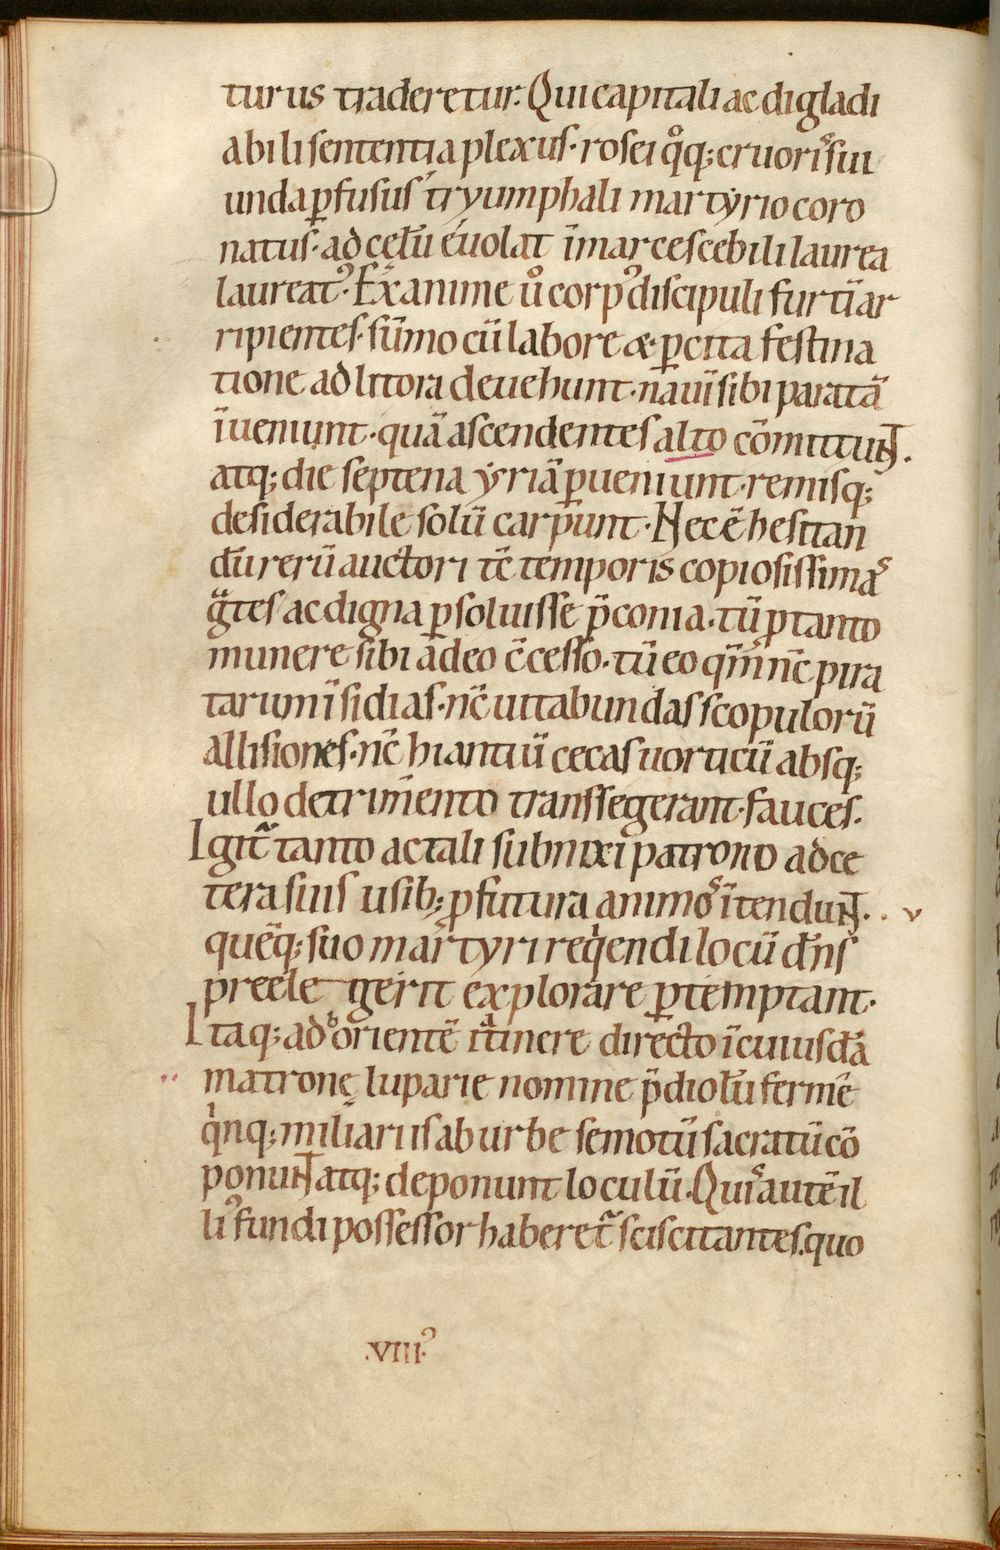 turus traderetur. Qui capitali ac digladi
abili sententia plexus· rosei q̊q; cruoris sui
unda ꝑfusus tryumphali martyrio coro
natus· ad cęlũ euolat ĩmarcescebili laurea
laureat᾽· Exanime ů corp᾽ discipuli furtĩ ar
ripientes· sũmo cũ labore & ꝑcita festina
tione ad litora deuehunt· nauĩ sibi paratã
ĩueniunt· quã ascendentes alto cõmittunt.
atq; die septena yriã ꝑueniunt· remisq;
desiderabile solũ carpunt· Nec ẽ hesitan
dũ rerũ auctori tc̃ temporis copiosissimas
g̃tes ac digna ꝑsoluisse p̃conia· tũ ꝓ tanto
munere sibi a deo c̃cesso· tũ eo qm̃ nc̃ pira
tarum ĩsidias· nc̃ uitabundas scopulorũ
allisiones· nc̃ hiantiũ cecas uorticũ absq;
ullo detrimento transsegerant· fauces.
Igit̃ tanto ac tali subnixi patrono ad ce
tera suis usib; ꝓfutura animos ĩtendunt.. v
quẽq; suo martyri reqͥendi locũ dñs
preele gerit explorare ꝑtemptant·
Itaq; ad orientẽ itinere directo ĩ cuiusdã
matronę luparie nomine p̃diolũ fermẽ
qͥnq; miliariis ab urbe semotũ sacratũ cõ
ponunt atq; deponunt loculũ· Quis autẽ il
li᾽ fundi possessor haberet̃ sciscitantes. quo
.VIII.᾽